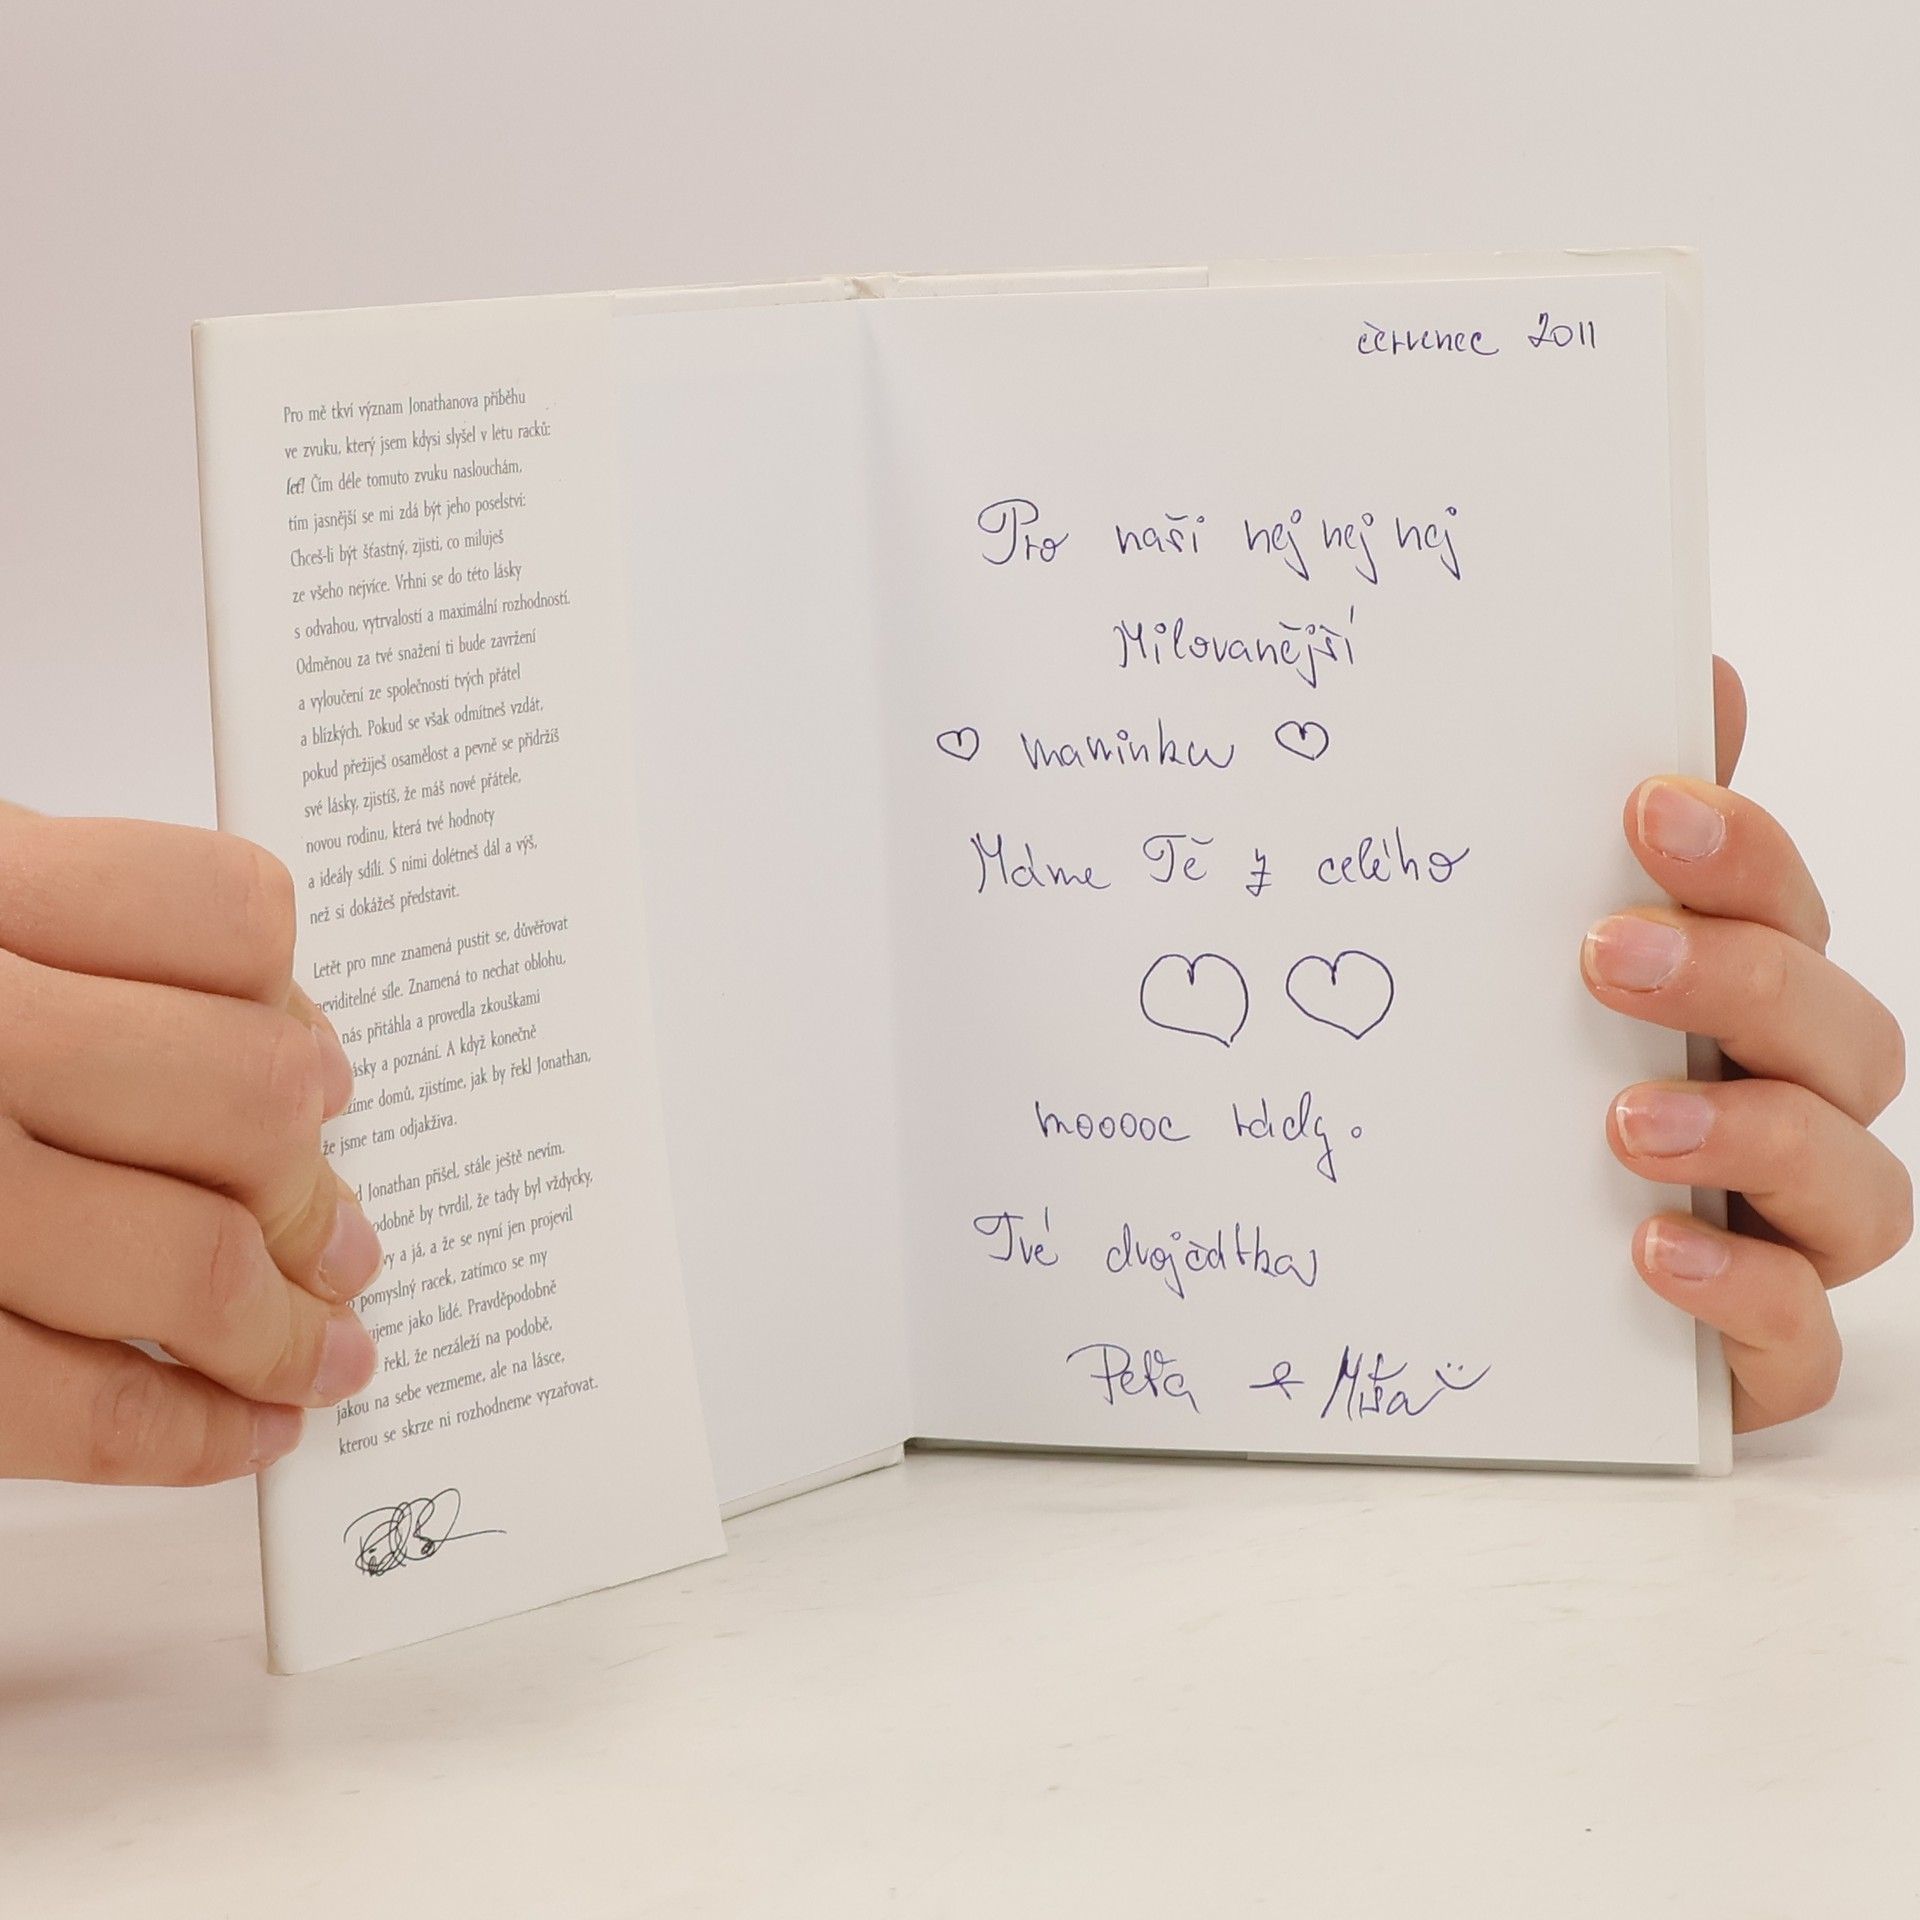 Pro mě tkví význam Jonathanova příběhu
ve zvuku, který jsem kdysi slyšel v letu racků:
leť! Čím déle tomuto zvuku naslouchám,
tím jasnější se mi zdá být jeho poselství:
Chceš-li být šťastný, zjisti, co miluješ
ze všeho nejvíce. Vrhni se do této lásky
s odvahou, vytrvalostí a maximální rozhodností.
Odměnou za tvé snažení ti bude zavržení
a vyloučení ze společnosti tvých přátel
a blízkých. Pokud se však odmítneš vzdát,
pokud přežiješ osamělost a pevně se přidržíš
své lásky, zjistíš, že máš nové přátele,
novou rodinu, která tvé hodnoty
a ideály sdílí. S nimi dolétneš dál a výš,
než si dokážeš představit.
Letět pro mne znamená pustit se, důvěřovat
neviditelné síle. Znamená to nechat oblohu,
nás přitáhla a provedla zkouškami
lásky a poznání. A když konečně
domů, zjistíme, jak by řekl Jonathan,
že jsme tam odjakživa.
Jonathan přišel, stále ještě nevím.
by tvrdil, že tady byl vždycky,
vy a já, a že se nyní jen projevil
pomyslný racek, zatímco se my
jako lidé. Pravděpodobně
řekl, že nezáleží na podobě,
jakou na sebe vezmeme, ale na lásce,
kterou se skrze ni rozhodneme vyzařovat.
červenec 2011
Pro naši nej nej nej
Milovanější
♡ maminku ♡
Máme Tě z celého
♡ ♡
mooooc rády.
Tvé dvojčátka
Péťa + Míša